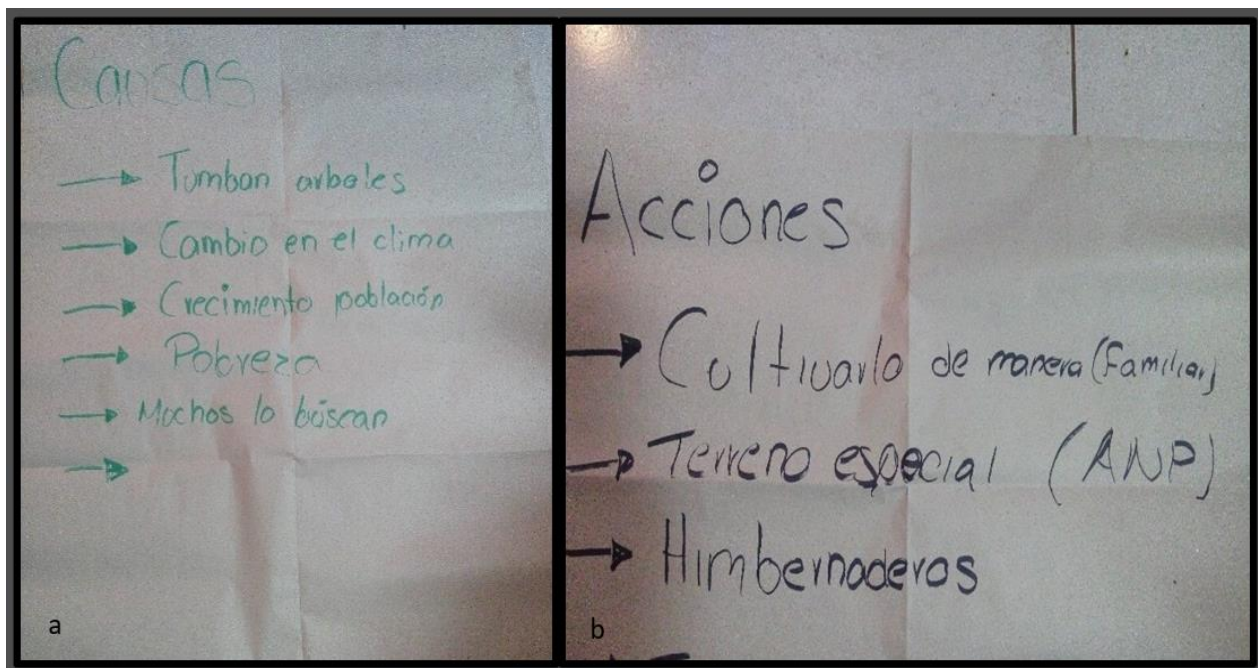 Causas
→ Tumban arboles
→ Cambio en el clima
→ Crecimiento población
→ Pobreza
→ Muchos lo búscan
→
a
Acciones
→ Cultivarlo de manera (Familiar)
→ Terreno especial (ANP)
→ Himbernaderos
b